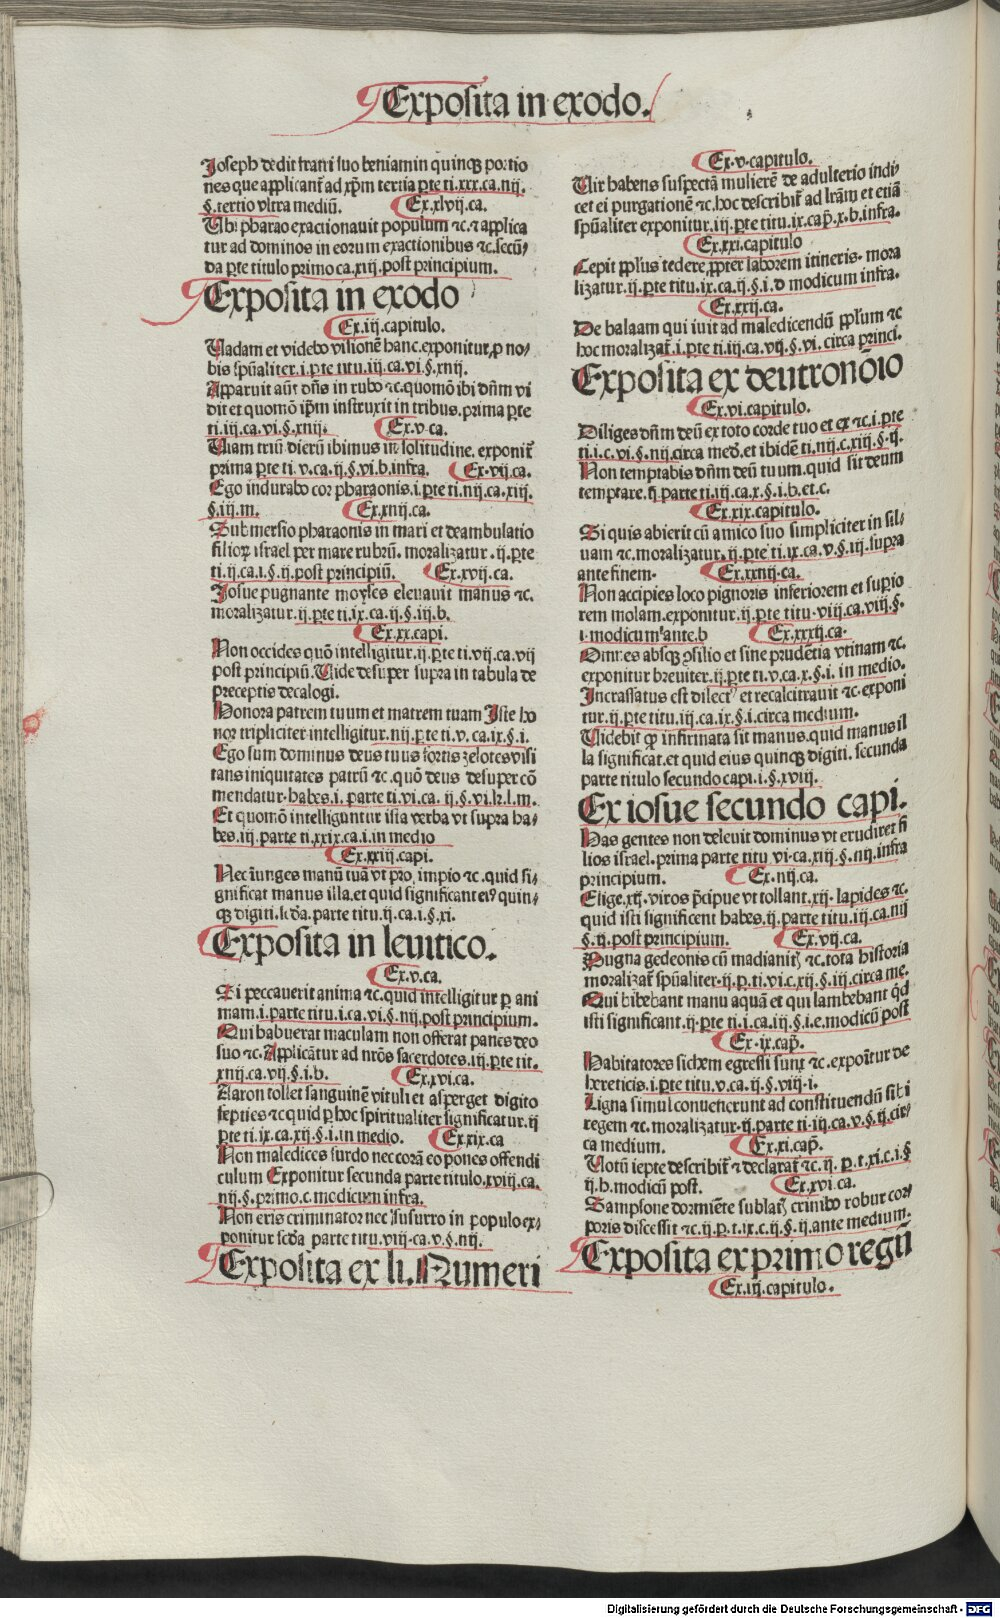 Exposita in exodo.
Joseph dedit fratri suo beniamin quinqꝫ portio
nes que applicant᷑ ad xp̄m tertia ꝑte ti.xxx.ca.iiij.
§.tertio vltra mediū. Ex.xlvij.ca.
Ubi pharao exactionauit populum ⁊c.⁊ applica
tur ad dominos in eorum exactionibus ⁊c.secū-
da ꝑte titulo primo ca.xiij.post principium.
Exposita in exodo
Ex.iij.capitulo.
Uadam et videbo visionē hanc.exponitur,ꝓ no-
bis spūaliter.i.ꝑte titu.iij.ca.vi.§.xiiij.
Apparuit aūt dn̄s in rubo ⁊c.quomō ibi dn̄m vi
dit et quomō ip̄m instruxit in tribus.prima ꝑte
ti.iij.ca.vi.§.xiiij. Ex.v.ca.
Uiam triū dierū ibimus in solitudine.exponit᷑
prima ꝑte ti.v.ca.ij.§.vi.b.infra. Ex.vij.ca.
Ego indurabo cor pharaonis.i.ꝑte ti.iiij.ca.xiij.
§.iij.m. Ex.xiiij.ca.
Submersio pharaonis in mari et deambulatio
filioꝝ israel per mare rubrū.moralizatur.ij.ꝑte
ti.ij.ca.i.§.ij.post principiū. Ex.xvij.ca.
Josue pugnante moyses eleuauit manus ⁊c.
moralizatur.ij.ꝑte ti.ix.ca.ij.§.iij.b.
Ex.xx.capi.
Non occides quō intelligitur.ij.ꝑte ti.vij.ca.vij
post principiū.Uide desuper supra in tabula de
preceptis decalogi.
Honora patrem tuum et matrem tuam Iste ho
nor tripliciter intelligitur.iiij.ꝑte ti.v.ca.ix.§.i.
Ego sum dominus deus tuus fortis zelotes visi
tans iniquitates patrū ⁊c.quō deus desuper cō
mendatur.habes.i.parte ti.vi.ca.ij.§.vi.k.l.m.
Et quomō intelliguntur ista verba vt supra ha-
bes.iij.parte ti.xxix.ca.i.in medio
Ex.xxiij.capi.
Nec iunges manū tuā vt pro,impio ⁊c.quid si-
gnificat manus illa.et quid significant eiꝰ quin-
qꝫ digiti.scd̄a.parte titu.ij.ca.i.§.xi.
Exposita in leuitico.
Ex.v.ca.
Si peccauerit anima ⁊c.quid intelligitur ꝑ ani
mam.i.parte titu.i.ca.vi.§.iiij.post principium.
Qui habuerat maculam non offerat panes deo
suo ⁊c.Applicātur ad nr̄os sacerdotes.iij.ꝑte tit.
xiiij.ca.vij.§.i.b. Ex.xvi.ca.
Aaron tollet sanguinē vituli et asperget digito
septies ⁊c quid ꝑ hoc spiritualiter significatur.ij
ꝑte ti.ix.ca.xij.§.i.in medio. Ex.xix.ca
Non maledices surdo nec corā eo pones offendi
culum Exponitur secunda parte titulo.xviij.ca.
iiij.§.primo.c.modicum infra.
Non eris criminator nec susurro in populo ex-
ponitur scd̄a parte titu.viij.ca.v.§.iiij.
Exposita ex li.Numeri
Ex.v.capitulo.
Uir habens suspectā mulierē de adulterio indi-
cet ei purgationē ⁊c.hoc describit᷑ ad lr̄am et etiā
spūaliter exponitur.iij.ꝑte titu.ix.cap̄.x.b.infra.
Ex.xxi.capitulo
Cepit pplūs tedere,ꝓpter laborem itineris.mora
lizatur.ij.ꝑte titu.ix.ca.ij.§.i.d modicum infra.
Ex.xxij.ca.
De balaam qui iuit ad maledicendū pplūm ⁊c
hoc moralizat᷑.i.ꝑte ti.iij.ca.vij.§.vi.circa princi.
Exposita ex deutronōio
Ex.vi.capitulo.
Diliges dn̄m deū ex toto corde tuo et ex ⁊c.i.ꝑte
ti.i.c.vi.§.iiij.circa med̄.et ibidē ti.iiij.c.xiij.§.ij.
Non temptabis dn̄m deū tuum.quid sit deum
temptare.ij parte ti.iij.ca.x.§.i.b.et.c.
Ex.xix.capitulo.
Si quis abierit cū amico suo simpliciter in sil-
uam ⁊c.moralizatur.ij.ꝑte ti.ix.ca.v.§.iij.supra
ante finem. Ex.xxiiij.ca.
Non accipies loco pignoris inferiorem et supio
rem molam.exponitur.ij.ꝑte titu.viij.ca.viij.§.
i.modicum ante.b Ex.xxxij.ca.
Omnes absqꝫ ꝯsilio et sine prudētia vtinam ⁊c.
exponitur breuiter.ij.ꝑte ti.v.ca.x.§.i.in medio.
Incrassatus est dilectꝰ et recalcitrauit ⁊c.exponi
tur.ij.ꝑte titu.iij.ca.ix.§.i.circa medium.
Uidebit ꝙ infirmata sit manus.quid manus il
la significat.et quid eius quinqꝫ digiti.secunda
parte titulo secundo capi.i.§.xviij.
Ex iosue secundo capi.
Has gentes non deleuit dominus vt erudiret fi
lios israel.prima parte titu vi.ca.xiij.§.iiij.infra
principium. Ex.iiij.ca.
Elige.xij.viros p̄cipue vt tollant.xij.lapides ⁊c.
quid isti significent habes.ij.parte titu.iij.ca.iiij
§.ij.post principium. Ex.vij.ca.
Pugna gedeonis cū madianitꝭ ⁊c.tota historia
moralizat᷑ spūaliter.ij.p.ti.vi.c.xij.§.iij.circa me.
Qui bibebant manu aquā et qui lambebant qd̄
isti significant.ij.ꝑte ti.i.ca.iij.§.i.e.modicū post
Ex.ix.cap̄.
Habitatores sichem egressi sunt ⁊c.exponit᷑ de
hereticis.i.ꝑte titu.v.ca.ij.§.viij.i.
Ligna simul conuenerunt ad constituendū sibi
regem ⁊c.moralizatur.ij.parte ti.iij.ca.v.§.ij.cir-
ca medium. Ex.xi.cap̄.
Uotū iepte describit᷑ ⁊ declarat᷑ ⁊c.ij.p.t.xi.c.i.§
ij.b.modicū post. Ex.xvi.ca.
Sampsone dormiēte sublatꝭ crinibꝰ robur cor-
poris discessit ⁊c.ij.p.t.ix.c.ij.§.ij.ante medium.
Exposita ex primo regū
Ex.iij.capitulo.
Digitalisierung gefördert durch die Deutsche Forschungsgemeinschaft - DFG